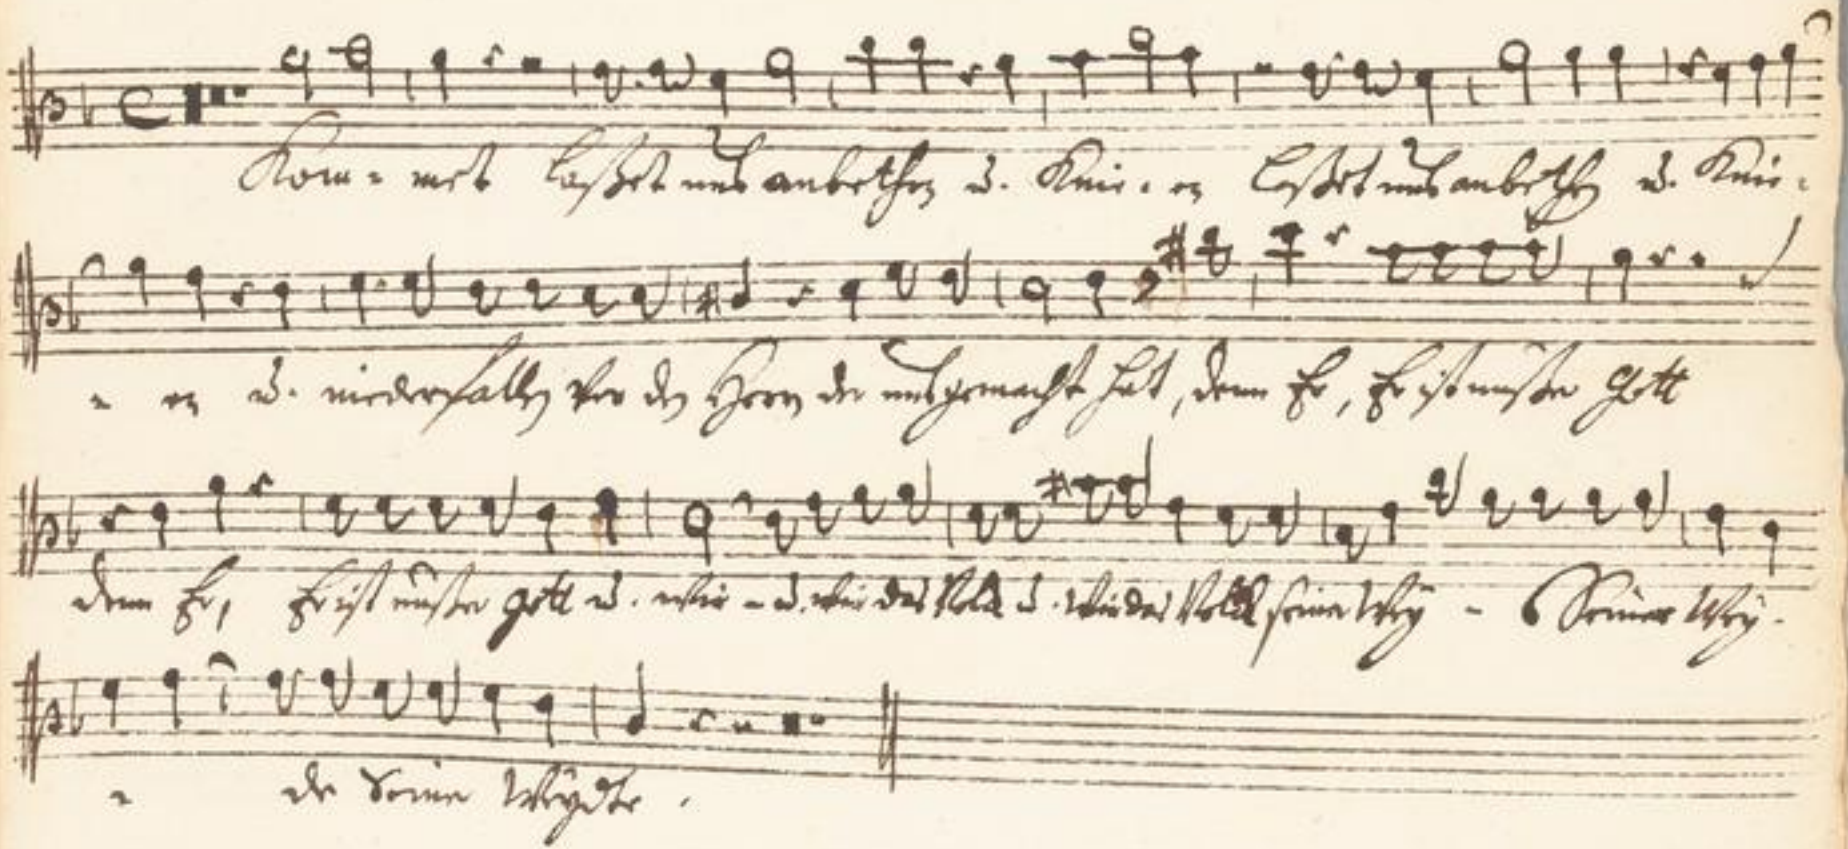 Kom- met laßet uns anbethen u. Knie- en laßet uns anbethen u. Knie-
- en u. niederfallen vor den Herrn der uns gemacht hat, denn Er, Er ist unser Gott
denn Er, Er ist unser Gott u. wir - u. wir das Volk u. wir das Volk seiner Wey - Seiner Wey-
- de Seiner Weyde.